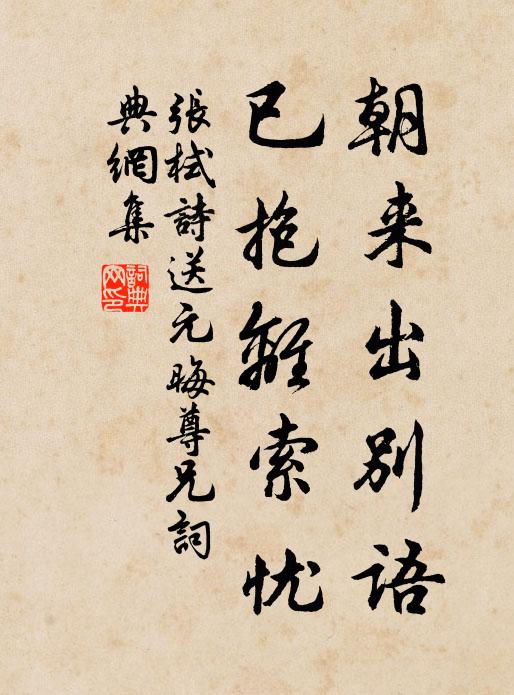 朝来出别語
已抱離索忧
張栻詩送元晦尊兄詞
典網集
詞典网印